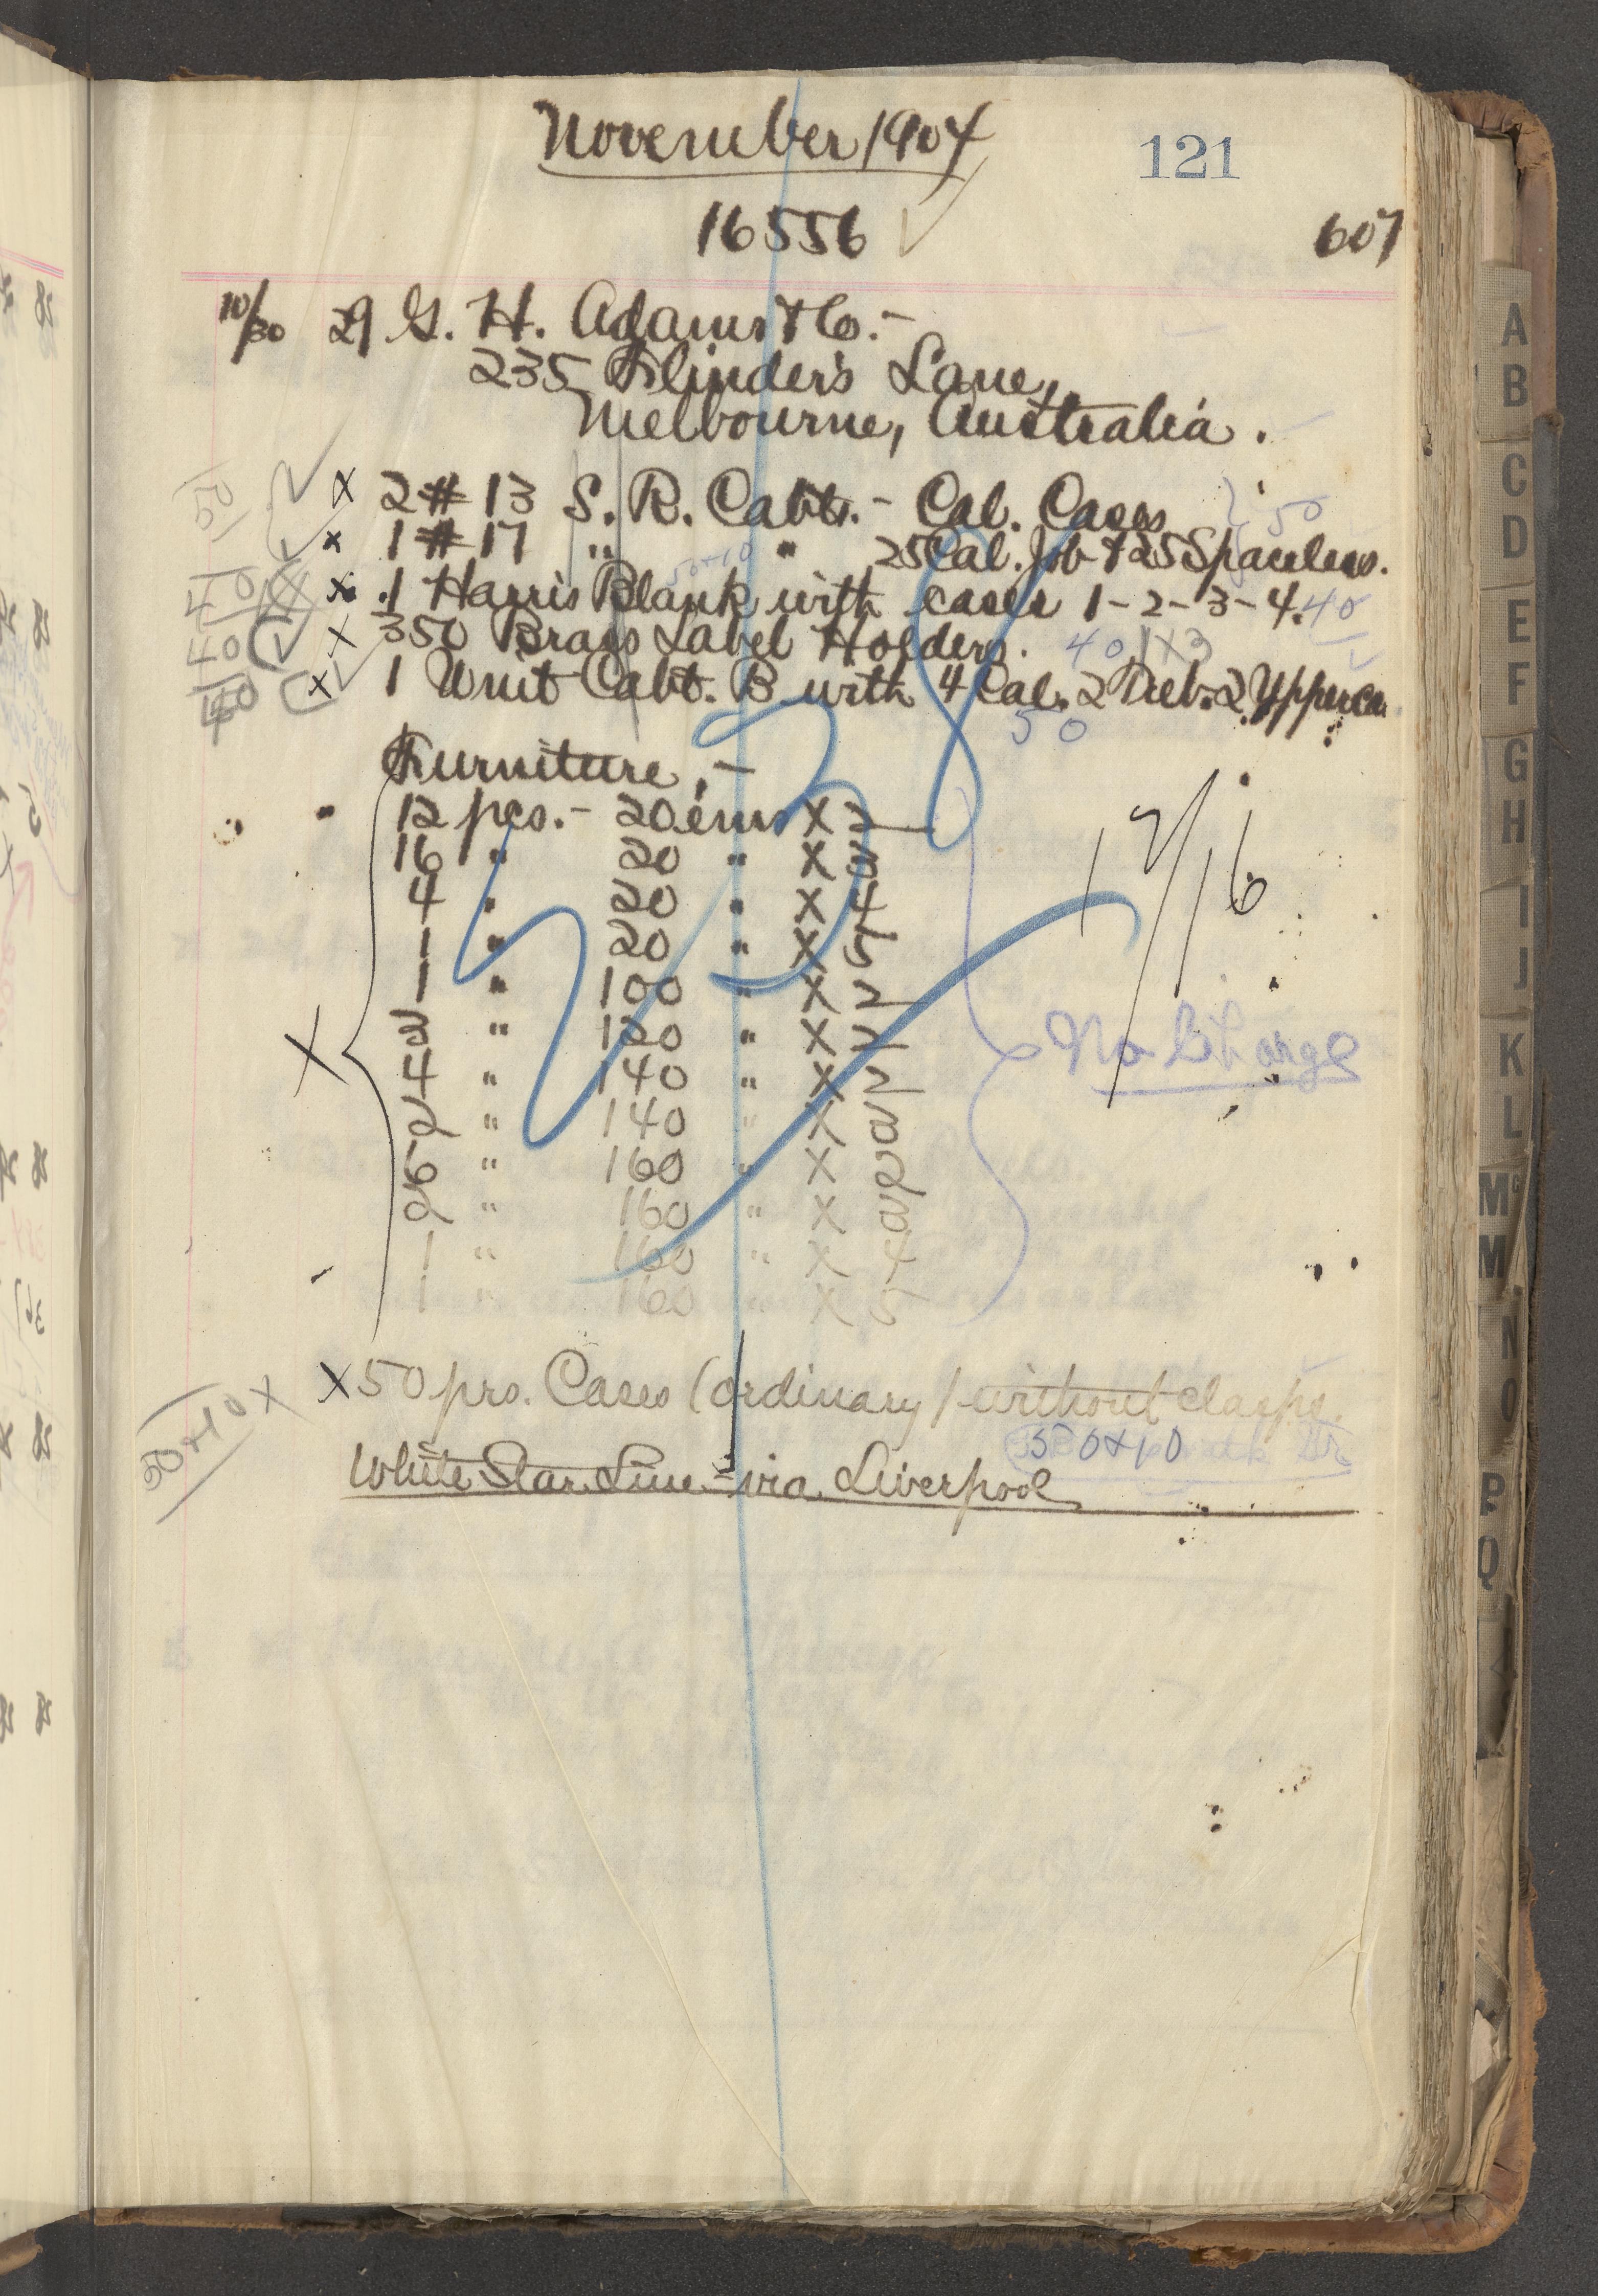 November 1904
121
16556
607
10/30 29 G. H. Adams & Co.-
235 Flinders Lane,
Melbourne, Australia.
50
x 2 # 13 S. R. Cabts.- Cal. Cases
50
x 1 # 17 " " 25 Cal. Job & 25 Spanless.
50+10
x 1 Harris Blank with cases 1-2-3-4. 40
x 350 Brass Label Holders. 40
x 1 Unit Cabt. B with 4 Cal. 2 Trib. 2 Upperca.
50
Furniture,-
12 pcs.- 20 ems X 2
16 " 20 " X 3
4 " 20 " X 4
1 " 20 " X 5
1 " 100 " X 2
3 " 120 " X 2
4 " 140 " X 2
2 " 140 " X 3
6 " 160 " X 2
2 " 160 " X 3
1 " 160 " X 4
1 " 160 " X 5
X
12/16
No Charge
x 50 prs. Cases (ordinary) without clasps.
50+10 x
50+10
White Star Line - via Liverpool
A
B
C
D
E
F
G
H
I
J
K
L
Mc
M
N
O
P
Q